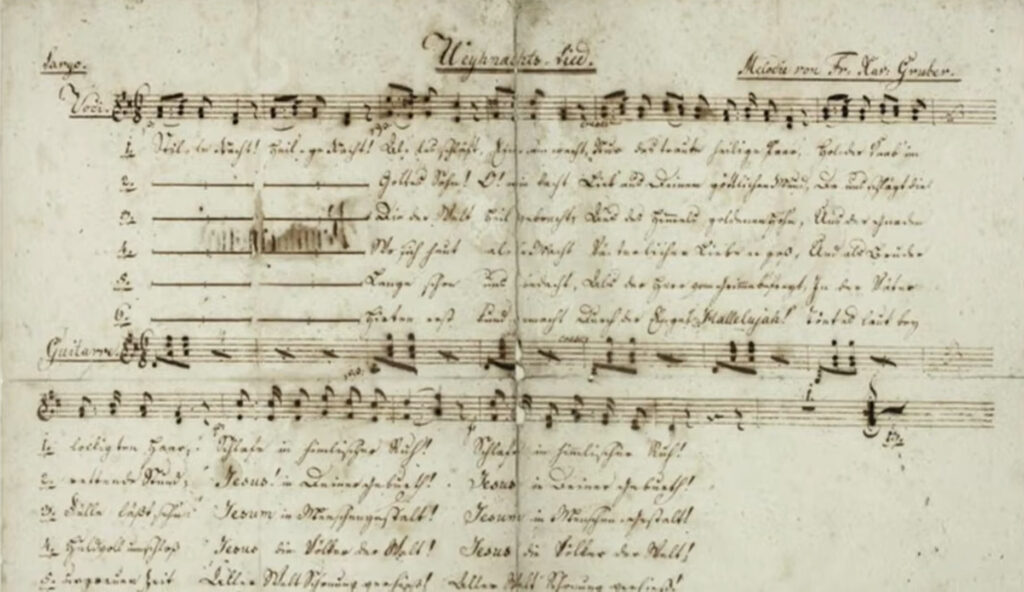 Largo.
Weyhnachts-Lied.
Melodie von Fr. Xav. Gruber.
Voci.
1. Stille Nacht! Heilige Nacht! Alles schläft, Einsam wacht, Nur das traute heilige Paar, Holder Knab im
2. Gottes Sohn! O! wie lacht Lieb aus Deinem göttlichen Mund, Da uns schlägt die
3. Die der Welt Heil gebracht; Aus des Himmels goldenen Höhn, Aus der Gnaden
4. Wo sich heut alle Macht Väterlicher Liebe ergoß, Und als Bruder
5. Lange schon uns bedacht, Als der Herr vom Grimme befreyt, In der Väter
6. Hirten erst kund gemacht Durch der Engel Hallelujah! Tönt es laut bey
Guitarre.
1. lockigten Haar; Schlafe in himlischer Ruh! Schlafe in himlischer Ruh!
2. rettende Stund; Jesus! in Deiner Geburth! Jesus in Deiner Geburth!
3. Fülle läßt sehn Jesum in Menschengestalt! Jesum in Menschengestalt!
4. Huldvoll umschloß Jesus die Völker der Welt! Jesus die Völker der Welt!
5. urgrauen Zeit Aller Welt Schonung verhieß! Aller Welt Schonung verhieß!